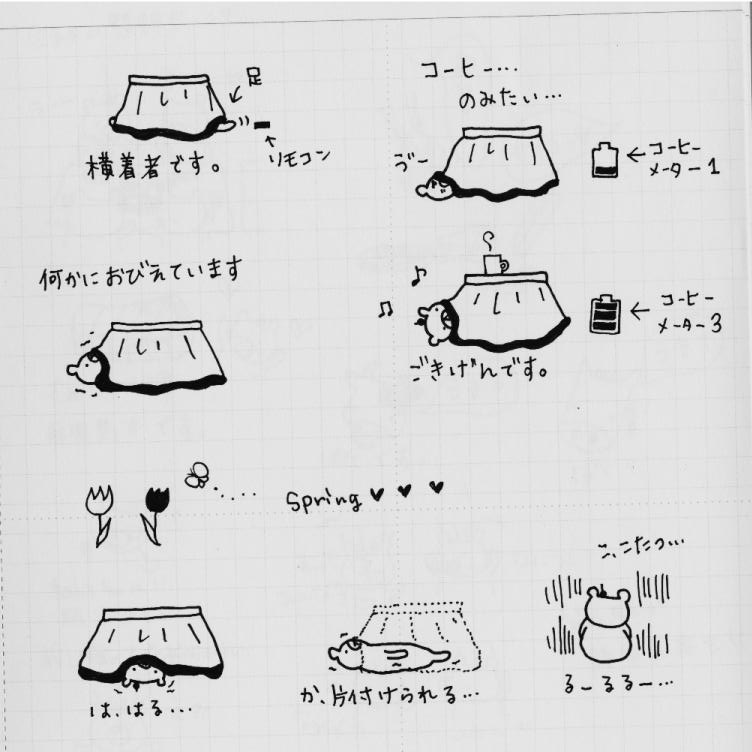 足
リモコン
横着者です。
コーヒー…
のみたい…
ゔー
コーヒー
メーター1
何かにおびえています
コーヒー
メーター3
ごきげんです。
Spring
こ、こたつ…
は、はる…
か、片付けられる…
るーるるー…